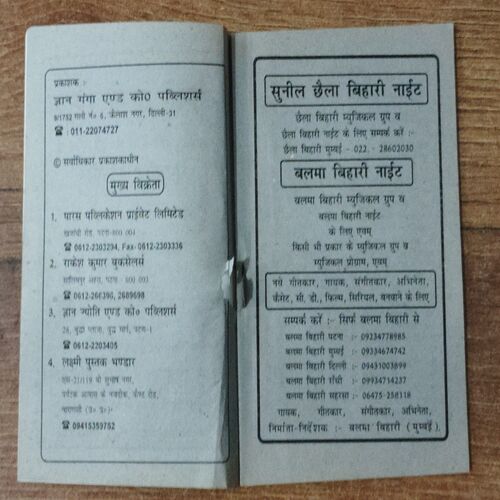 प्रकाशक :
ज्ञान गंगा एण्ड को० पब्लिशर्स
9/1752 गली नं० 6, कैलाश नगर, दिल्ली-31
☎ : 011-22074727
© सर्वाधिकार प्रकाशकाधीन
मुख्य विक्रेता
1. पारस पब्लिकेशन प्राईवेट लिमिटेड
खजांची रोड, पटना-800 004
☎ 0612-2303294, Fax-0612-2303336
2. राकेश कुमार बुकसेलर्स
सालिमपुर अहरा, पटना - 800 003
☎ 0612-266390, 2689698
3. ज्ञान ज्योति एण्ड को० पब्लिशर्स
26, बुद्धा प्लाजा, बुद्ध मार्ग, पटना-1
☎ 0612-2203405
4. लक्ष्मी पुस्तक भण्डार
बी सुभाष नगर,
पर्यटक आवास के नजदीक, कैण्ट रोड,
वाराणसी (उ० प्र०)-
☎ 09415359752
सुनील छैला बिहारी नाईट
छैला बिहारी म्युजिकल ग्रुप व
छैला बिहारी नाईट के लिए सम्पर्क करें :-
छैला बिहारी मुम्बई - 022 - 28602030
बलमा बिहारी नाईट
बलमा बिहारी म्युजिकल ग्रुप व
बलमा बिहारी नाईट
के लिए एवम्
किसी भी प्रकार के म्युजिकल ग्रुप व
म्युजिकल प्रोग्राम, एवम्
नये गीतकार, गायक, संगीतकार, अभिनेता,
कैसेट, सी. डी., फिल्म, सिरियल, बनवाने के लिए
सम्पर्क करें :- सिर्फ बलमा बिहारी से
बलमा बिहारी पटना :- 09234778985
बलमा बिहारी मुम्बई :- 09334674742
बलमा बिहारी दिल्ली :- 09431003899
बलमा बिहारी राँची :- 09934714237
बलमा बिहारी सहरसा :- 06475-258118
गायक, गीतकार, संगीतकार, अभिनेता,
निर्माता-निर्देशक :- बलमा बिहारी (मुम्बई)